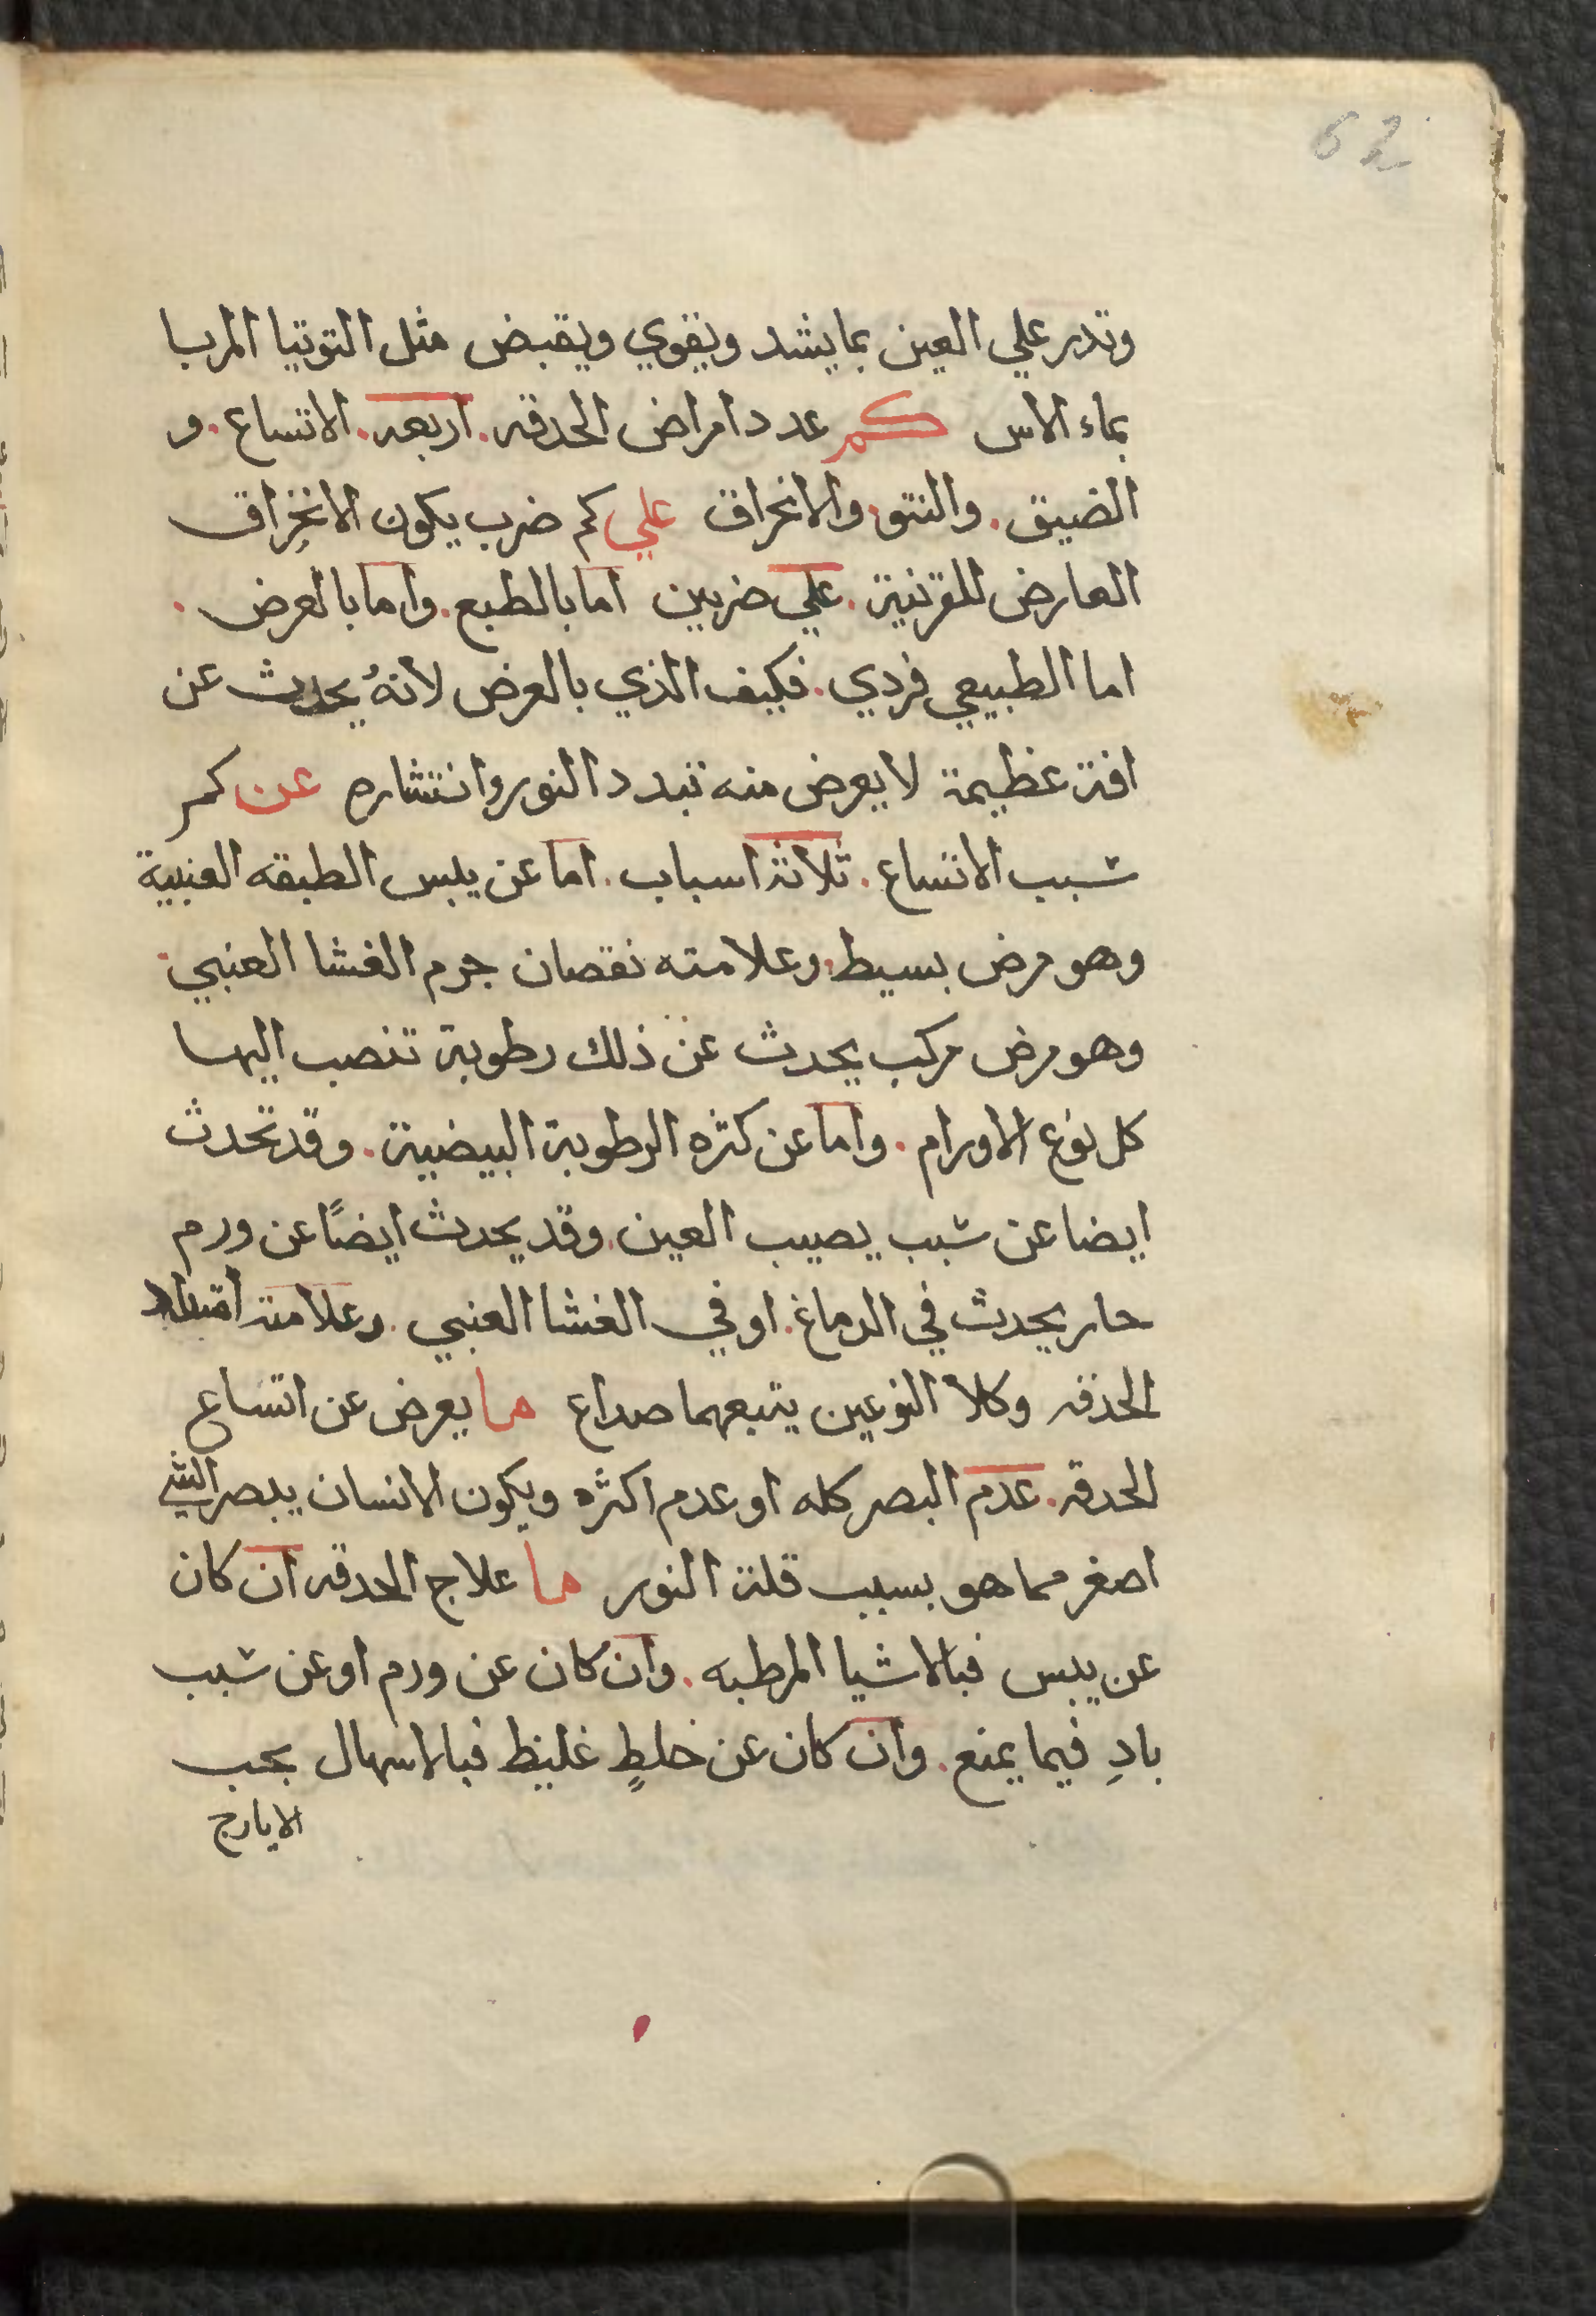 62
وتدر علي العين بما يشد ويقوي ويقبض مثل التوتيا المربا
بماء الاس كم عدد امراض الحدقه. اربعه. الاتساع. و
الضيق. والنتو. والانخراق علي كم ضرب يكون الانخراق
العارض للقرنية. علي ضربين اما بالطبع. واما بالعرض.
اما الطبيعي فردي. فكيف الذي بالعرض لأنهُ يحدث عن
افة عظيمة لا يعرض منه تبدد النور وانتشاره عن كم
شبب الاتساع. ثلاثة اسباب. اما عن يبس الطبقه العنبية
وهو مرض بسيط. وعلامته نقصان جرم الغشا العنبي.
وهو مرض مركب يحدث عن ذلك رطوبة تنصب اليها
كل نوع الاورام. واما عن كثره الرطوبة البيضية. وقد تحدث
ايضا عن شبب يصيب العين. وقد يحدث ايضًا عن ورم
حار يحدث في الدماغ. او في الغشا العنبي. وعلامة
الحدقه وكلا النوعين يتبعهما صداع ما يعرض عن اتساع
الحدقه. عدم البصر كله او عدم اكثره ويكون الانسان يبصر الشي
اصغر مما هو بسبب قلة النور ما علاج الحدقه ان كان
عن يبس فبالاشيا المرطبه. وان كان عن ورم او عن شبب
بادِ فيما يمنع. وان كان عن خلطٍ غليظ فبالاسهال بحب
الايارج